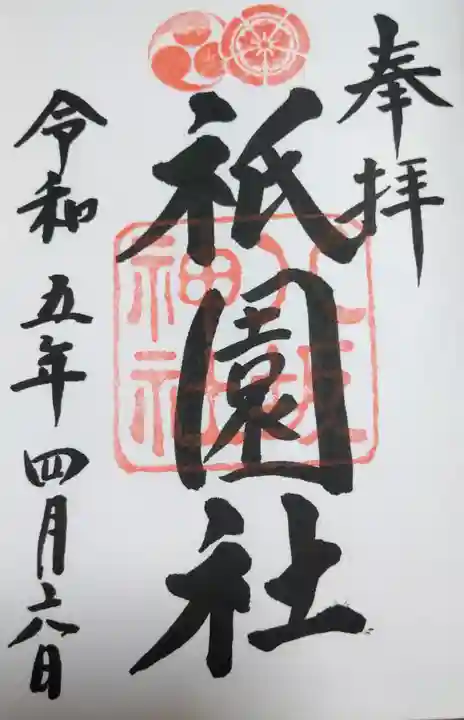 奉拝
祇園社
八坂神社
令和五年四月六日